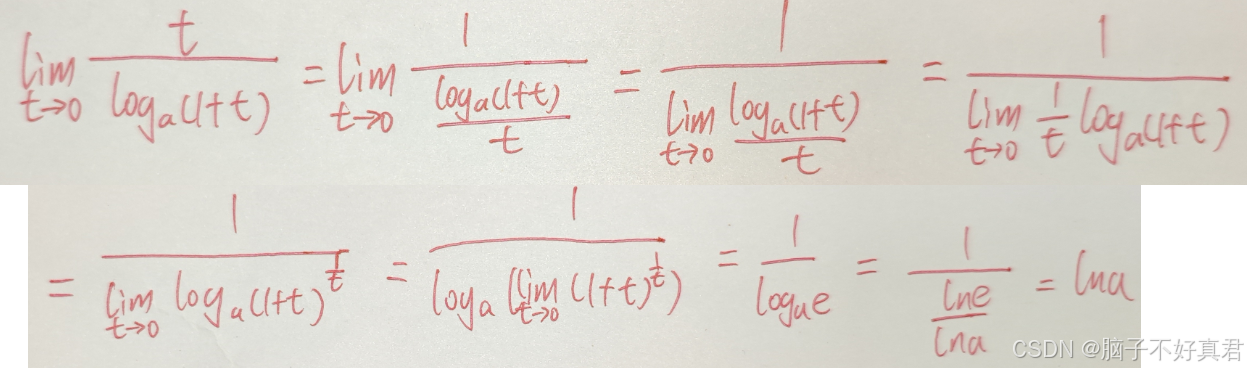 lim_{t→0} t / log_a(1+t) = lim_{t→0} 1 / (log_a(1+t) / t) = 1 / (lim_{t→0} log_a(1+t) / t) = 1 / (lim_{t→0} 1/t log_a(1+t))
= 1 / (lim_{t→0} log_a(1+t)^{1/t}) = 1 / (log_a (lim_{t→0} (1+t)^{1/t})) = 1 / log_a e = 1 / (lne / lna) = lna
CSDN @脑子不好真君